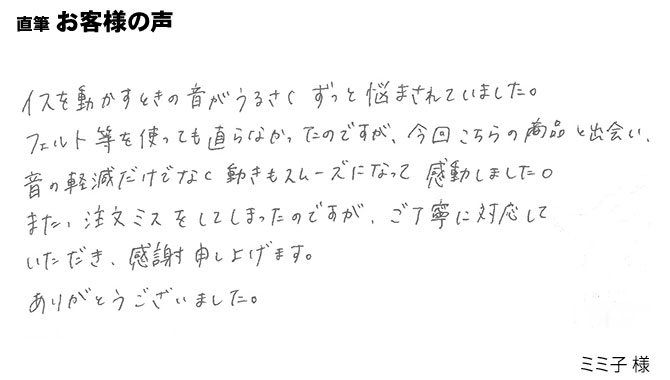 直筆 お客様の声
イスを動かすときの音がうるさく ずっと悩まされていました。
フェルト等を使っても直らなかったのですが、今回こちらの商品と出会い、
音の軽減だけでなく動きもスムーズになって 感動しました。
また、注文ミスをしてしまったのですが、ご丁寧に対応して
いただき、感謝申し上げます。
ありがとうございました。
ミミ子 様